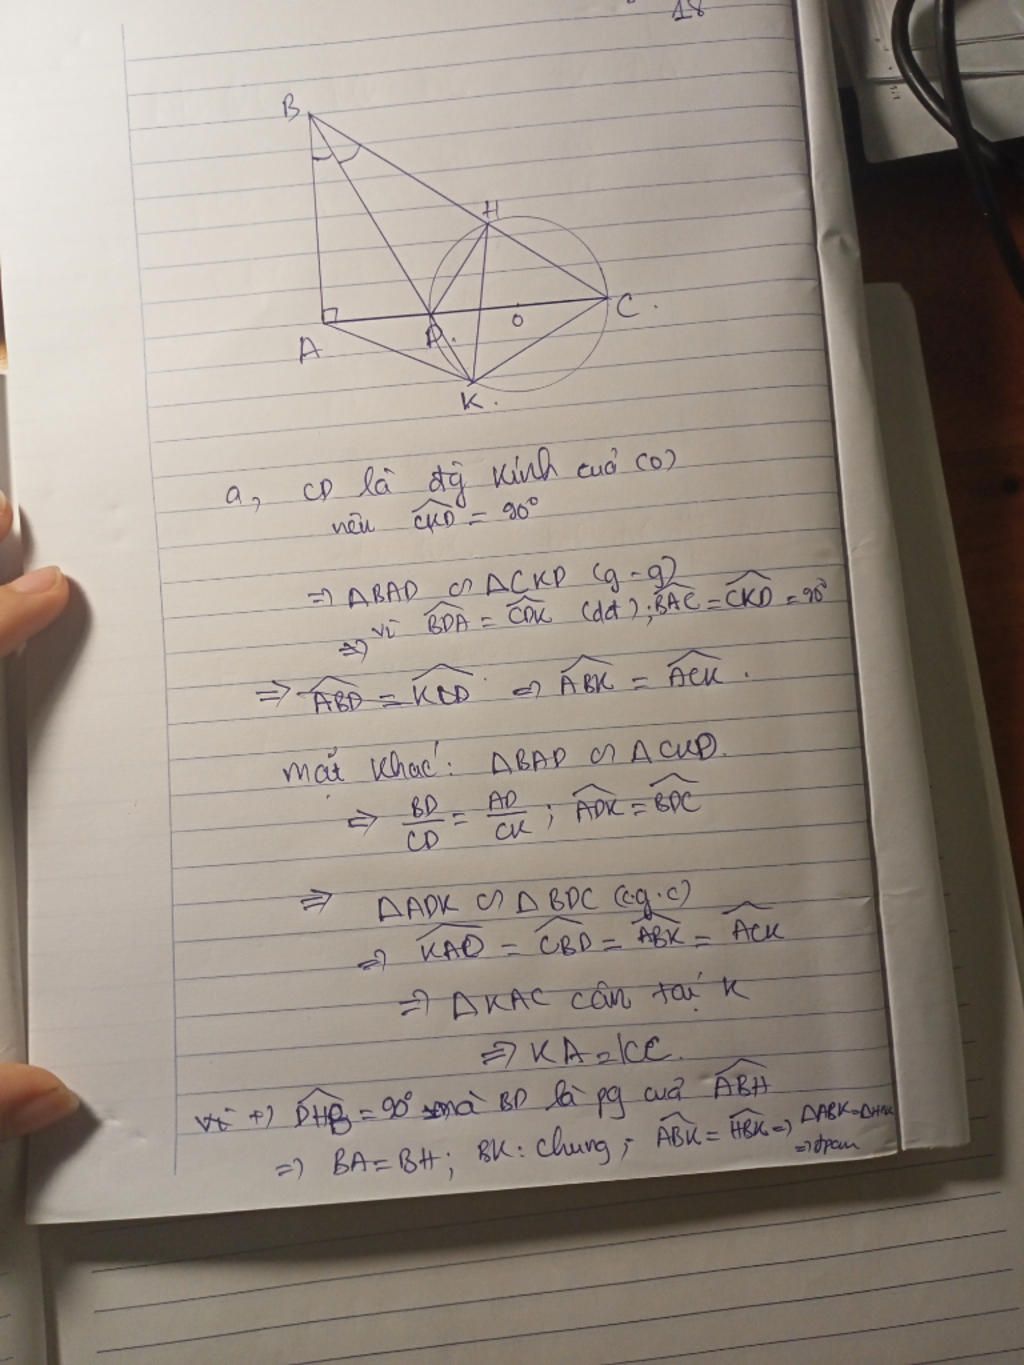 18
B
H
C.
O
D.
A
K.
a, CD là đg kính của (O)
nên CKD = 90°
=> ΔBAD ∽ ΔCKD (g-g)
=> vì BDA = CDK (dđ); BAC = CKD = 90°
=> ABD = KCD => ABK = ACK.
mặt khác: ΔBAD ∽ ΔCKD.
=> BD/CD = AD/CK ; ADK = BDC
=> ΔADK ∽ ΔBDC (c.g.c)
=> KAD = CBD = ABK = ACK
=> ΔKAC cân tại K
=> KA = KC.
Vì +) DHB = 90° mà BD là pg của ABH
=> BA = BH; BK: chung; ABK = HBK => ΔABK = ΔHBK
=> đpcm